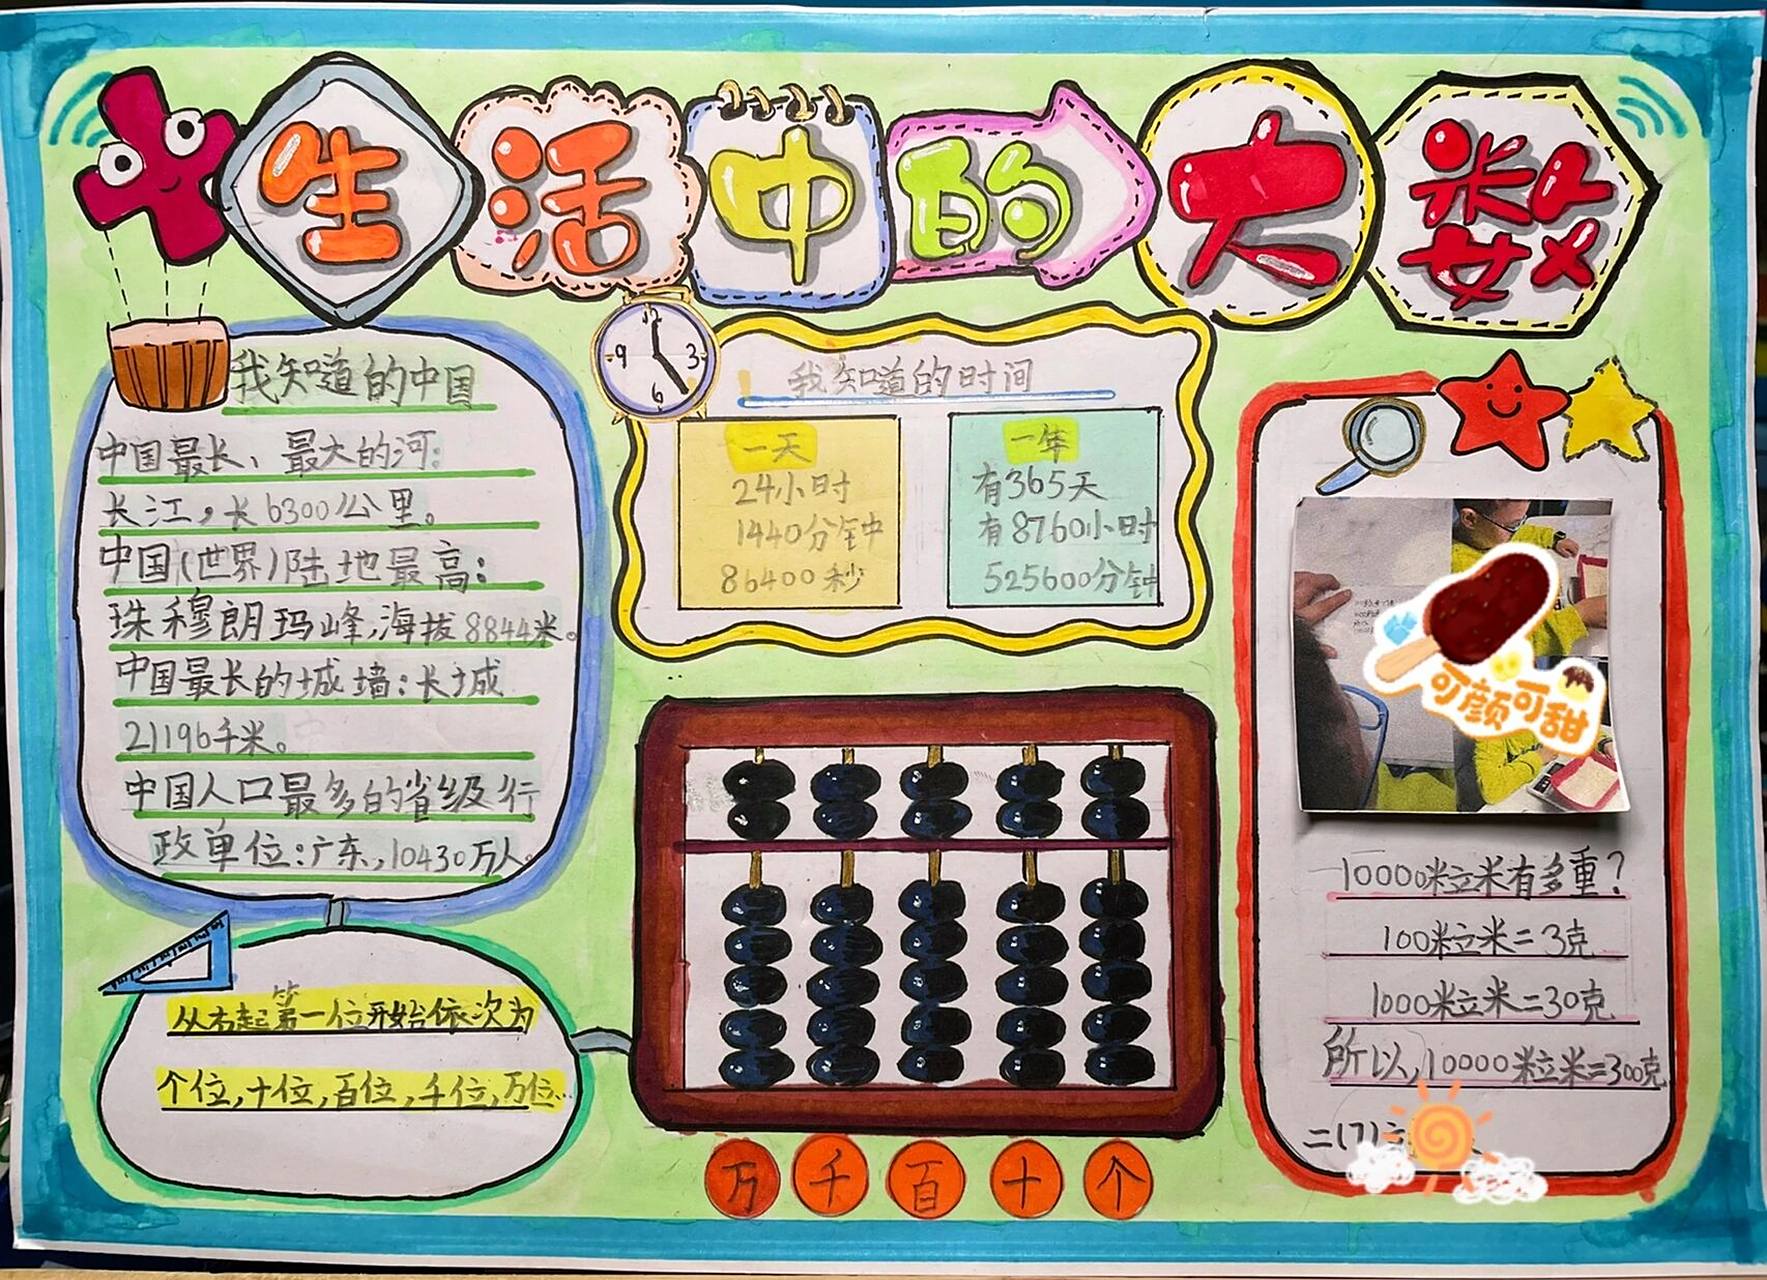 生活中的大数
我知道的中国
中国最长、最大的河:
长江,长6300公里。
中国(世界)陆地最高:
珠穆朗玛峰,海拔8844米。
中国最长的城墙:长城
21196千米。
中国人口最多的省级行
政单位:广东,10430万人。
从右起第一位开始依次为
个位,十位,百位,千位,万位…
12
3
6
9
我知道的时间
一天
24小时
1440分钟
86400秒
一年
有365天
有8760小时
525600分钟
万 千 百 十 个
可颜可甜
10000粒米有多重?
100粒米=3克
1000粒米=30克
所以,10000粒米=300克
二(7)